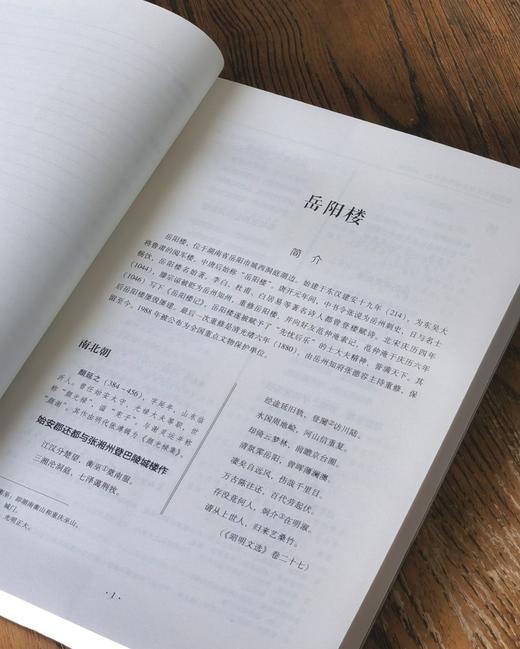 岳阳楼
简 介
岳阳楼，位于湖南省岳阳市城西洞庭湖边，始建于东汉建安十九年（214），为东吴大
将鲁肃的阅军楼，中唐后始称“岳阳楼”。唐开元年间，中书令张说为岳州刺史，日与名士
畅饮，岳阳楼名始著，李白、杜甫、白居易等著名诗人都曾登楼赋诗。北宋庆历四年
（1044），滕宗谅被贬为岳州知州，重修岳阳楼，并向好友范仲淹索记。范仲淹于庆历六年
（1046）写下《岳阳楼记》，岳阳楼遂被赋予了“先忧后乐”的士大夫精神，誉满天下。其
后岳阳楼屡毁屡建，最后一次重修是清光绪六年（1880），由岳州知府张德容主持重修，保
留至今。1988 年被公布为全国重点文物保护单位。
南北朝
颜延之（384～456），字延年，山东临
沂人，曾任始安太守、光禄大夫等职，世
称“颜光禄”，谥“宪子”，与谢灵运并称
“颜谢”，其作由明代张溥辑为《颜光禄集》。
始安郡还都与张湘州登巴陵城楼作
江汉分楚望，衡巫①奠南服。
三湘沦洞庭，七泽蔼荆牧。
经途延旧轨，登闉②访川陆。
水国周地崄，河山信重复。
却倚云梦林，前瞻京台囿。
清氛霁岳阳，曾晖薄澜澳。
凄矣自远风，伤哉千里目。
万古陈往还，百代劳起伏。
存没竟何人，炯介③在明淑。
请从上世人，归来艺桑竹。
（《昭明文选》卷二十七）
衡巫：即湖南衡山和重庆巫山。
城门。
光明正大。
·1·